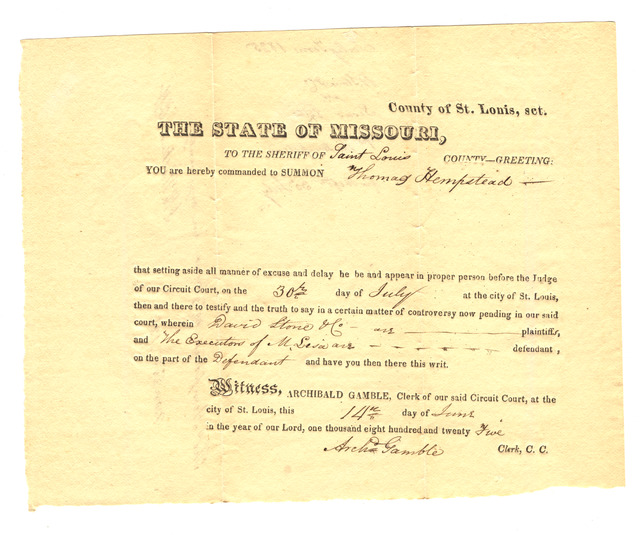 County of St. Louis, sct.
THE STATE OF MISSOURI,
TO THE SHERIFF OF Saint Louis COUNTY—GREETING:
YOU are hereby commanded to SUMMON Thomas Hempstead —
that setting aside all manner of excuse and delay he be and appear in proper person before the Judge
of our Circuit Court, on the 30th day of July at the city of St. Louis,
then and there to testify and the truth to say in a certain matter of controversy now pending in our said
court, wherein David Stone & Co — are — plaintiffs,
and The Executors of M. Lisa are - - - - - - defendant ,
on the part of the Defendant and have you then there this writ.
Witness, ARCHIBALD GAMBLE, Clerk of our said Circuit Court, at the
city of St. Louis, this 14th day of June
in the year of our Lord, one thousand eight hundred and twenty Five
Archd Gamble Clerk, C. C.